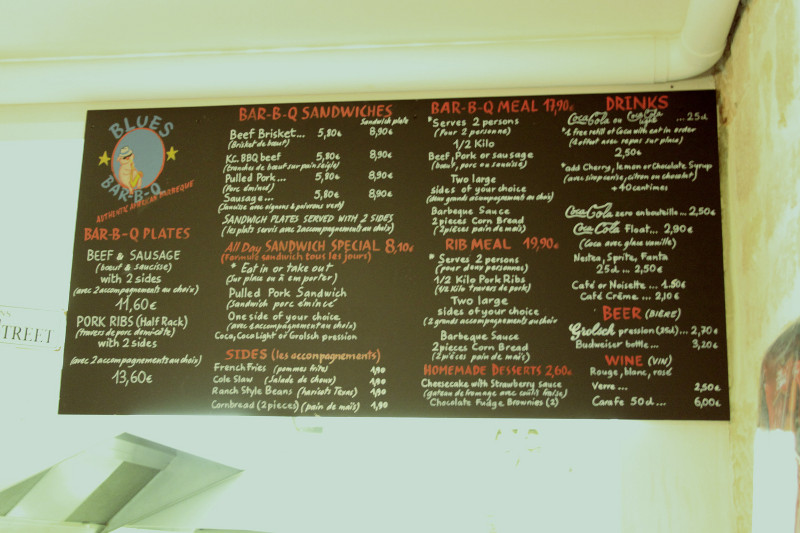 BLUES
BAR-B-Q
AUTHENTIC AMERICAN BARBEQUE
BAR-B-Q PLATES
BEEF & SAUSAGE
(bœuf & saucisse)
with 2 sides
(avec 2 accompagnements au choix)
11,60€
PORK RIBS (Half Rack)
(travers de porc demi-côte)
with 2 sides
(avec 2 accompagnements au choix)
13,60€
BAR-B-Q SANDWICHES
Sandwich plate
Beef Brisket... 5,80€ 8,90€
(Brisket de bœuf)
KC. BBQ beef 5,80€ 8,90€
(tranches de bœuf sur pain seigle)
Pulled Pork... 5,80€ 8,90€
(Porc émincé)
Sausage... 5,80€ 8,90€
(Saucisse avec oignons & poivrons vert)
SANDWICH PLATES SERVED WITH 2 SIDES
(les plats servis avec 2 accompagnements au choix)
All Day SANDWICH SPECIAL 8,10€
(Formule sandwich tous les jours)
* Eat in or take out
(Sur place ou à emporter)
Pulled Pork Sandwich
(Sandwich porc émincé)
One side of your choice
(avec 1 accompagnement au choix)
Coca, Coca Light or Grolsch pression
SIDES (les accompagnements)
French Fries (pommes frite) 1,90
Cole Slaw (Salade de choux) 1,90
Ranch Style Beans (haricots Texans) 1,90
Cornbread (2 pieces) (pain de maïs) 1,90
BAR-B-Q MEAL 17,90€
*Serves 2 persons
(Pour 2 personne)
1/2 Kilo
Beef, Pork or sausage
(bœuf, porc ou saucisse)
Two large
sides of your choice
(deux grands accompagnements au choix)
Barbeque Sauce
2 pieces Corn Bread
(2 pièces pain de maïs)
RIB MEAL 19,90€
* Serves 2 persons
(pour deux personnes)
1/2 Kilo Pork Ribs
(1/2 Kilo travers de pork)
Two large
sides of your choice
(2 grands accompagnements au choix)
Barbeque Sauce
2 pieces Corn Bread
(2 pièces pain de maïs)
HOMEMADE DESSERTS 2,60€
Cheesecake with Strawberry sauce
(gateau de fromage avec coulis fraise)
Chocolate Fudge Brownies (2)
DRINKS
Coca-Cola ou Coca-Cola light ... 25cl
*1 free refill of Coca with eat in order
(1 offert avec repas sur place)
2,50€
*add Cherry, lemon or Chocolate Syrup
(avec sirop cerise, citron ou chocolat)
+40 centimes
Coca-Cola zero en bouteille... 2,50€
Coca-Cola Float... 2,90€
(Coca avec glace vanille)
Nestea, Sprite, Fanta
25cl ... 2,50€
Café or Noisette ... 1.50€
Café Crême ... 2,10€
BEER (BIÈRE)
Grolsch pression (25cl)... 2,70€
Budweiser bottle ... 3,20€
WINE (VIN)
Rouge, blanc, rosé
Verre ... 2,50€
Carafe 50cl... 6,00€
STREET